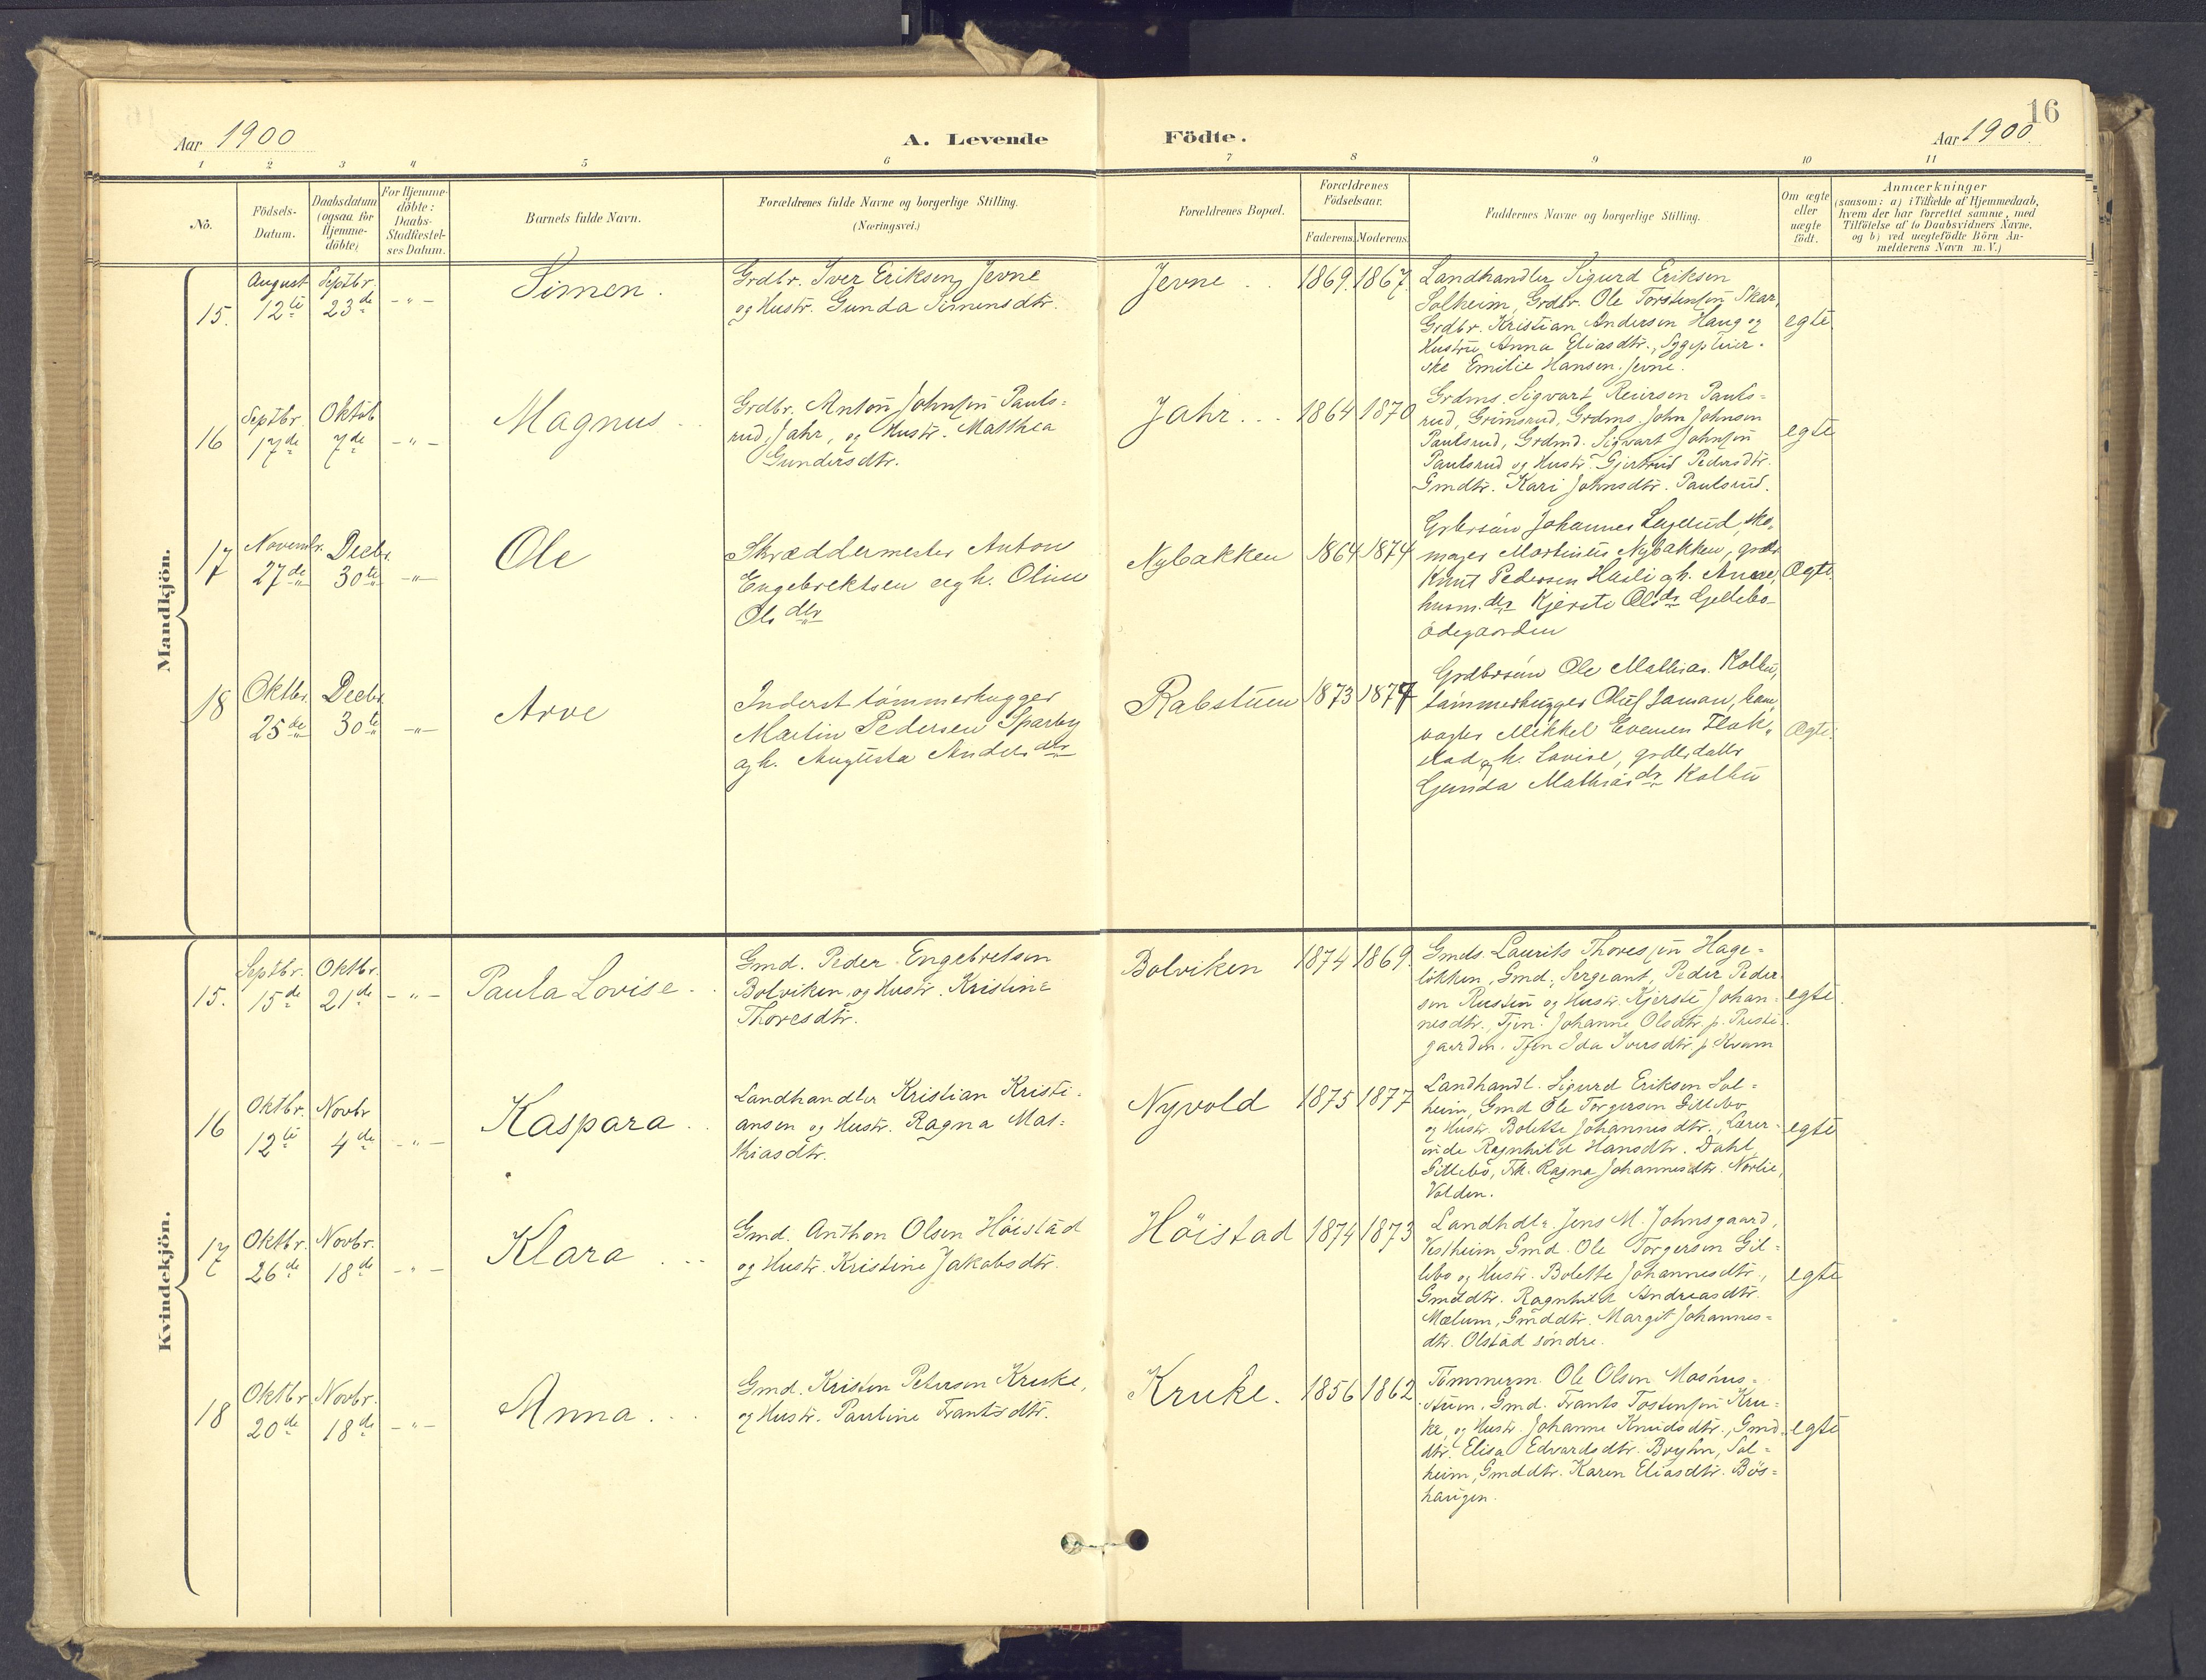 16
Aar 1900
A. Levende
Födte.
Aar 1900.
1 2 3 4 5 6 7 8 9 10 11
No.
Födsels-
Datum.
Daabsdatum
(ogsaa for
Hjemme-
döbte)
For Hjemme-
döbte:
Daabs-
Stadfæstel-
ses Datum.
Barnets fulde Navn.
Forældrenes fulde Navne og borgerlige Stilling.
(Næringsvei.)
Forældrenes Bopæl.
Forældrenes
Födselsaar.
Faderens. Moderens.
Faddernes Navne og borgerlige Stilling.
Om ægte
eller
uægte
födt.
Anmærkninger
(saasom: a) i Tilfælde af Hjemmedaab,
hvem der har forrettet samme, med
Tilföielse af to Daabsvidners Navne.
og b) ved uægtefödte Börn An-
melderens Navn m. V.)
Mandkjön.
15.
August
12te
Septbr.
23de
- " -
Simen.
Grdbr. Iver Eriksen, Jevne
og Hustr. Gunda Simensdtr.
Jevne
1869. 1867.
Landhandler Sigurd Eriksen
Solheim, Grdbr. Ole Torstensen Skar,
Grdbr. Kristian Andersen Haug og
Hustru Anna Eliasdtr., Sygepleier-
ske Emilie Hansen. Jevne.
egte
16
Septbr.
17de
Oktob
7de
- " -
Magnus
Grdbr. Anton Johnsen Pauls=
rud, Jahr, og Hustr. Matthea
Gundersdtr.
Jahr
1864 1870
Grdms. Sigvart Reiersen Pauls=
rud, Grimsrud, Grdms. John Johnsen
Paulsrud, Grdmd. Sigvart Johnsen
Paulsrud og Hustr. Gjertrud Pedersdtr.
Gmdtr. Kari Johnsdtr. Paulsrud.
egte
17
Novembr.
27de
Decbr.
30te
- " -
Ole
Skræddermester Anton
Engebrektsen og h. Oline
Ols dtr
Nybakken
1864 1874
Johannes sko,
mager Martinius Nybakken,
Knut Pedersen og h. Anne,
husm. dtr Kjersti Olsdr Gillebo-
ödegaarden
Ægte
18
Oktbr.
25de
Decbr.
30te
- " -
Arve
Inderst tömmerhugger
Martin Pedersen Sparby
og h. Augusta Anders dtr
Rabstuen
1873 1877
Grdbrsön Ole Mathias. Kolbu,
tömmerhugger Oluf
Mikkel Evensen Flak,
stad og h. Lovise,
Gunda Mathiasdr Kolbu
Ægte.
Kvindekjön.
15.
Septbr.
15de
Oktbr.
21de
- " -
Paula Lovise
Gmd. Peder Engebretsen
Bolviken, og Hustr. Kristine
Thoresdtr.
Bolviken
1874 1869.
Gmds. Laurits Thoresen Hage=
lökken, Gmd., Sergeant, Peder Peder
sen Rusten og Hustr. Kjersti Johan=
nesdtr., Tjen. Johanne Olsdtr. p. Preste
gaarden. Tjen Ida Iversdtr. p. Kvam
egte
16
Oktbr.
12te
Novbr
4de
- " -
Kaspara
Landhandler Kristian Kristi-
ansen og Hustr. Ragna Mat=
hiasdtr.
Nyvold
1875 1877
Landhandl. Sigurd Eriksen Sol=
heim, Gmd Ole Torgersen Gillebo
og Hustr. Bolette Johannesdtr., Lærer-
inde Ragnhild Hansdtr. Dahl,
Gillebo, Frk. Ragna Johannesdtr. Norlie,
Volden.
egte
17
Oktbr.
26de
Novbr.
18de
- " -
Klara
Gmd. Anthon Olsen Höistad
og Hustr. Kristine Jakobsdtr.
Höistad
1874 1873
Landhdlr. Jens M. Johnsgaard,
Vestheim, Gmd. Ole Torgersen Gil=
lebo og Hustr. Bolette Johannesdtr.,
Gmddtr. Ragnhild Andreasdtr.
Mælum, Gmddtr. Margit Johannes=
dtr. Olstad söndre.
egte
18
Oktbr
20de
Novbr.
18de
- " -
Anna
Gmd. Kristen Petersen Kruke,
og Hustr. Pauline Frantsdtr.
Kruke.
1856 1862
Tömmerm. Ole Olsen Moshus=
stuen. Gmd. Frants Tostensen Kru=
ke, og Hustr. Johanne Knudsdtr., Gmd
dtr. Elisa Edvardsdtr. Bryhn, Sol=
heim, Gmddtr. Karen Eliasdtr. Bös=
haugen.
egte